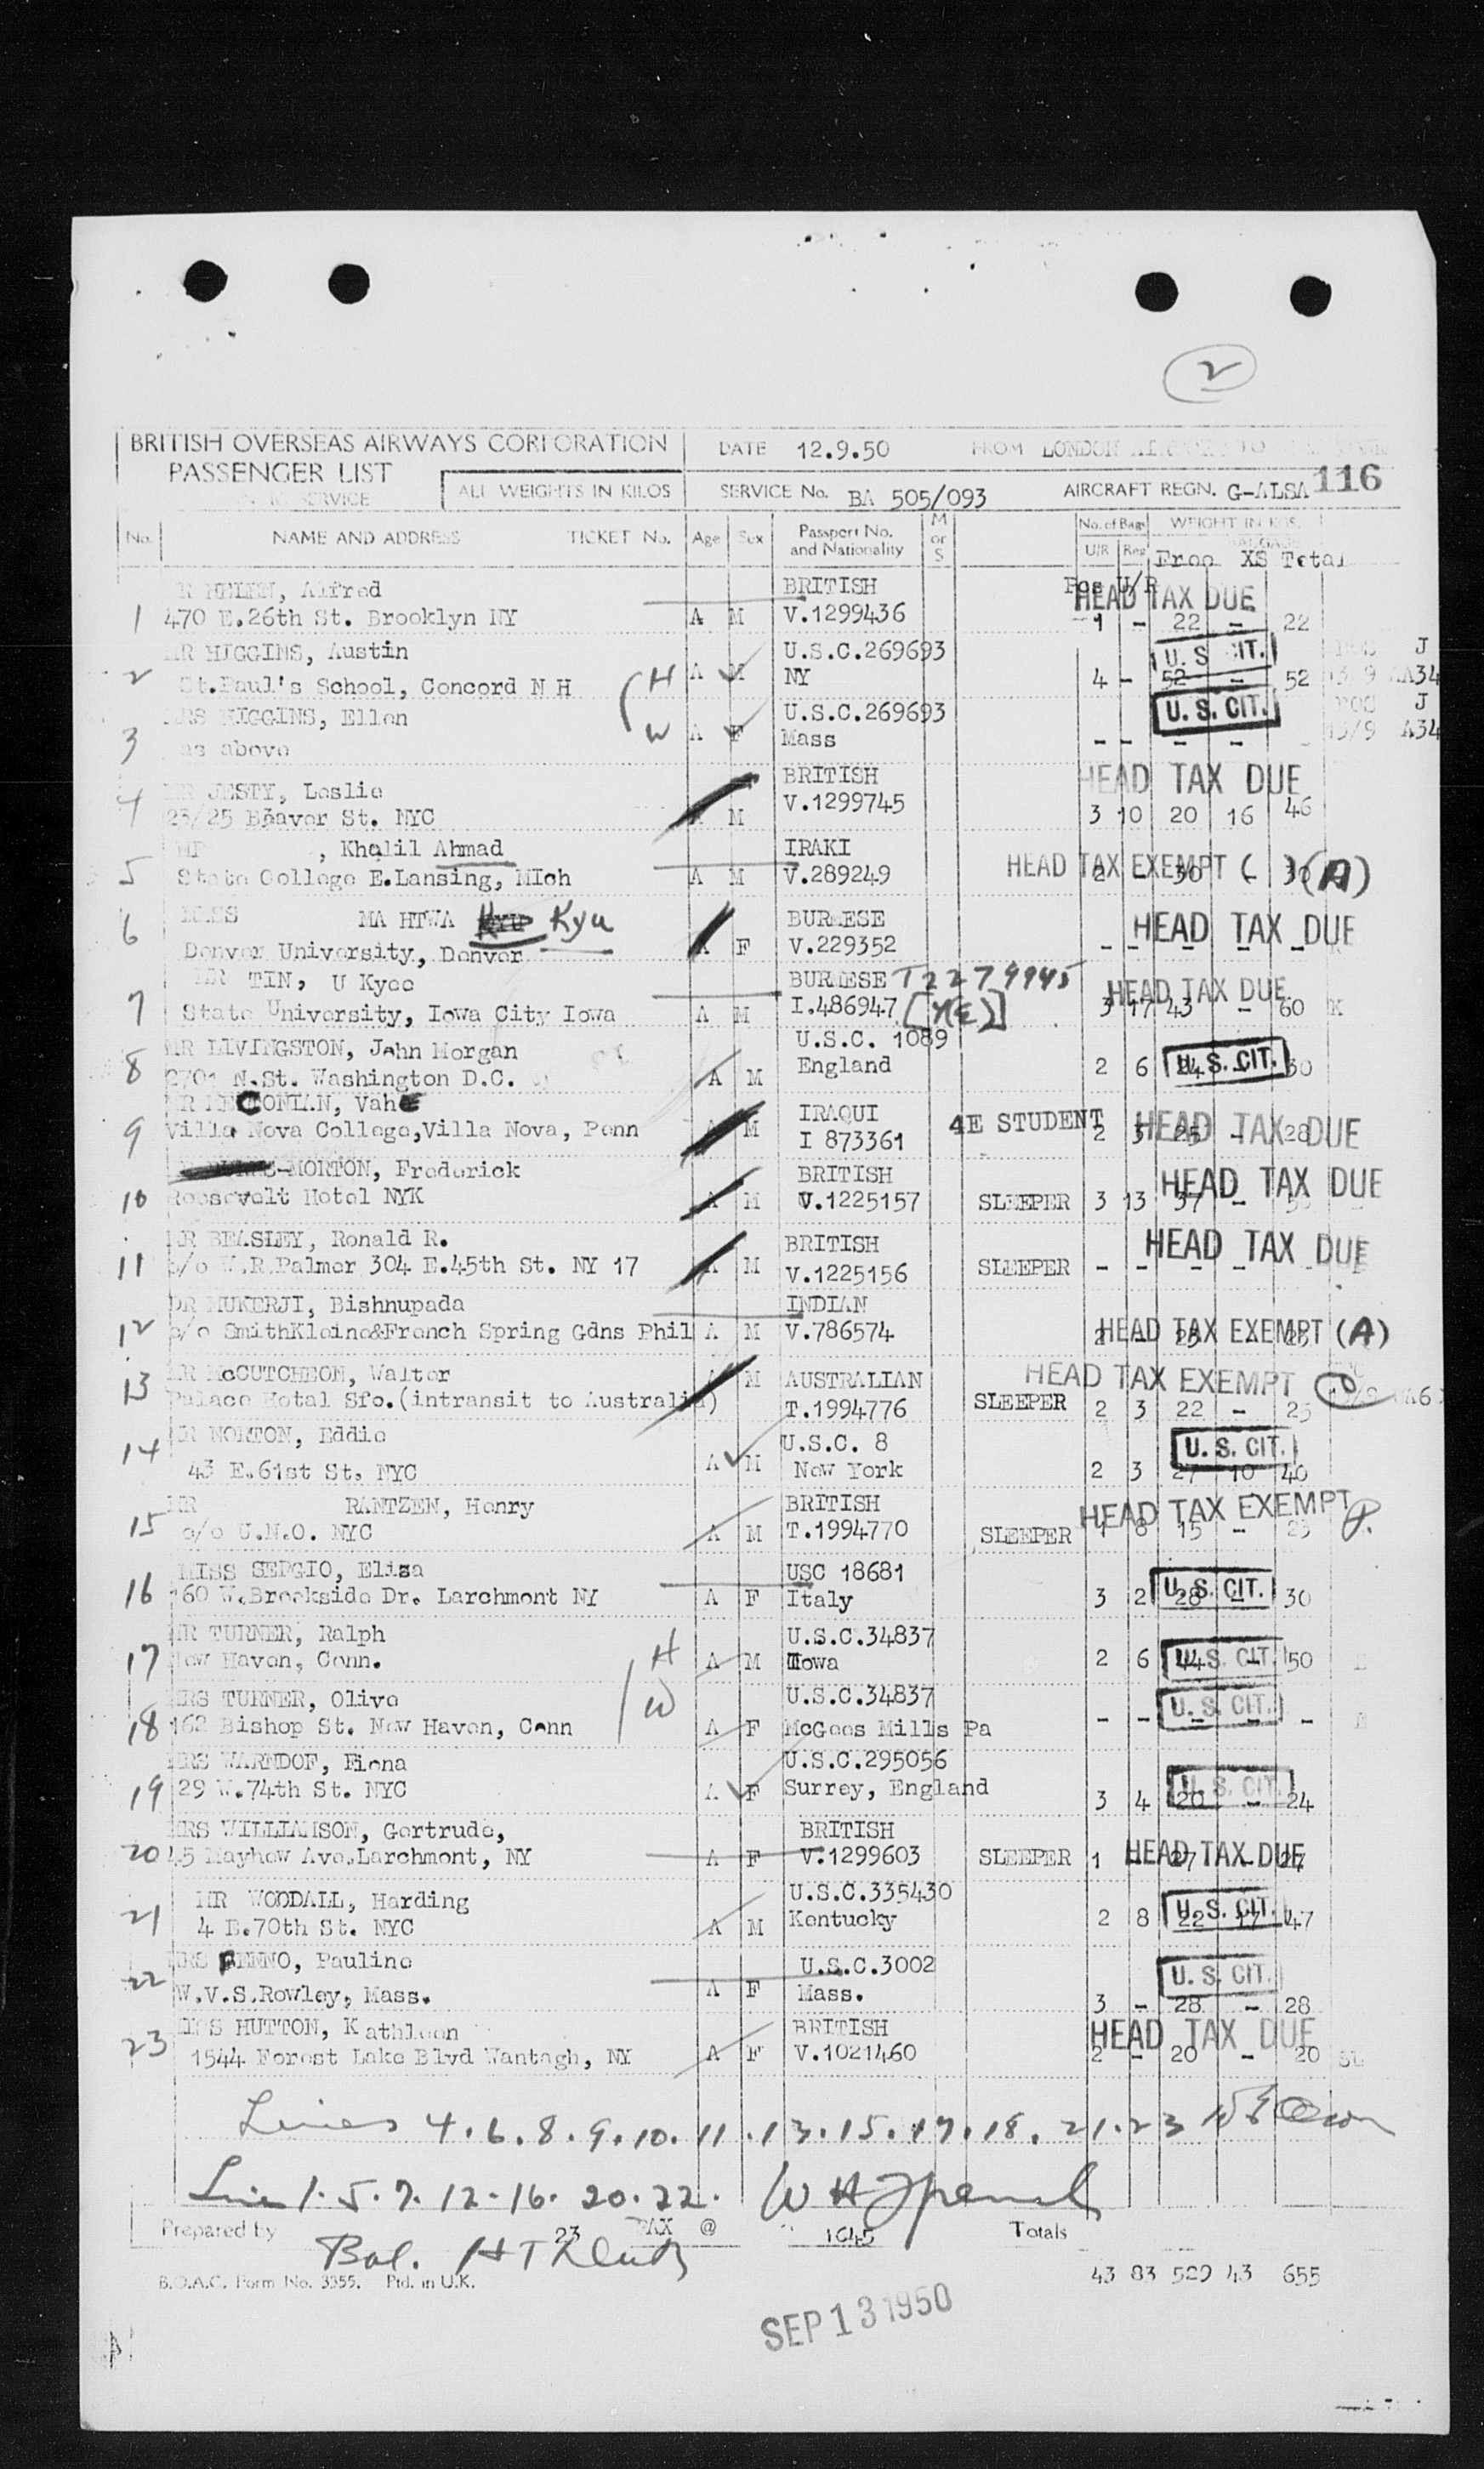 2
BRITISH OVERSEAS AIRWAYS CORPORATION
PASSENGER LIST
SERVICE
ALL WEIGHTS IN KILOS
DATE 12.9.50 FROM LONDON TO
SERVICE No. BA 505/093 AIRCRAFT REGN. G-ALSA 116
No. NAME AND ADDRESS TICKET No. Age Sex Passport No. and Nationality M or S No. of Bags U/R Reg WEIGHT IN KGS. Free XS Total
Pcs U/R
MR HELEN, Alfred BRITISH HEAD TAX DUE
1 470 E.26th St. Brooklyn NY A M V.1299436 1 - 22 - 22
MR HIGGINS, Austin U.S.C.269693 U.S. CIT. J
2 St.Paul's School, Concord N H H A M NY 4 - 52 - 52 13/9 AA34
MRS HIGGINS, Ellen U.S.C.269693 U.S. CIT. J
3 as above W A F Mass - - - - - 13/9 A34
MR JESTY, Leslie BRITISH HEAD TAX DUE
4 23/25 Beaver St. NYC A M V.1299745 3 10 20 16 46
MR , Khalil Ahmad IRAKI
5 State College E.Lansing, MIch A M V.289249 HEAD TAX EXEMPT ( ) (A) 2 30 30
MISS MA HTWA Kyu BURMESE HEAD TAX DUE
6 Denver University, Denver A F V.229352 - - - - -
MR TIN, U Kyee BURMESE T2279945 HEAD TAX DUE
7 State University, Iowa City Iowa A M I.486947 [4(E)] 3 17 43 - 60 K
MR LIVINGSTON, John Morgan U.S.C. 1089
8 2701 N.St. Washington D.C. A M England 2 6 24 U.S. CIT. 30
MR ME CONIAN, Vahe IRAQUI
9 Villa Nova College,Villa Nova, Penn A M I 873361 4E STUDENT 2 3 25 - 28 HEAD TAX DUE
-MORTON, Frederick BRITISH HEAD TAX DUE
10 Roosevelt Hotel NYK A M V.1225157 SLEEPER 3 13 37 -
MR BEASLEY, Ronald R. BRITISH HEAD TAX DUE
11 c/o W.R.Palmer 304 E.45th St. NY 17 A M V.1225156 SLEEPER - - - - -
DR MUKERJI, Bishnupada INDIAN
12 c/o SmithKleine&French Spring Gdns Phil A M V.786574 HEAD TAX EXEMPT (A) 2 -
MR McCUTCHEON, Walter A M AUSTRALIAN HEAD TAX EXEMPT
13 Palace Hotal Sfo.(intransit to Australia) T.1994776 SLEEPER 2 3 22 - 25
MR NORTON, Eddie U.S.C. 8 U.S. CIT.
14 43 E.61st St. NYC A M New York 2 3 27 10 40
MR RANTZEN, Henry BRITISH HEAD TAX EXEMPT P.
15 c/o U.N.O. NYC A M T.1994770 SLEEPER 1 8 15 - 23
MISS SERGIO, Elisa USC 18681 U.S. CIT.
16 160 W.Brookside Dr. Larchmont NY A F Italy 3 2 28 - 30
MR TURNER, Ralph U.S.C.34837
17 New Haven, Conn. H A M Iowa 2 6 44 - 50 U.S. CIT.
MRS TURNER, Olive U.S.C.34837 U.S. CIT.
18 162 Bishop St. New Haven, Conn W A F McGees Mills Pa - - - - -
MRS WARNDOF, Fiona U.S.C.295056 U.S. CIT.
19 29 W.74th St. NYC A F Surrey, England 3 4 20 - 24
MRS WILLIAMSON, Gertrude, BRITISH
20 45 Mayhew Ave.Larchmont, NY A F V.1299603 SLEEPER 1 - 27 - 27 HEAD TAX DUE
MR WOODALL, Harding U.S.C.335430
21 4 E.70th St. NYC A M Kentucky 2 8 22 17 47 U.S. CIT.
MRS FENNO, Pauline U.S.C.3002 U.S. CIT.
22 W.V.S.Rowley, Mass. A F Mass. 3 - 28 - 28
MRS HUTTON, Kathleen BRITISH HEAD TAX DUE
23 1544 Forest Lake Blvd Wantagh, NY A F V.1021460 2 - 20 - 20
Lines 4.6.8.9.10.11.13.15.17.18.21.23
Lines 1.5.7.12.16.20.22.
Prepared by 23 PAX @ 1645 Totals
Bal.
43 83 529 43 655
B.O.A.C. Form No. 3355. Ptd. in U.K.
SEP 13 1950